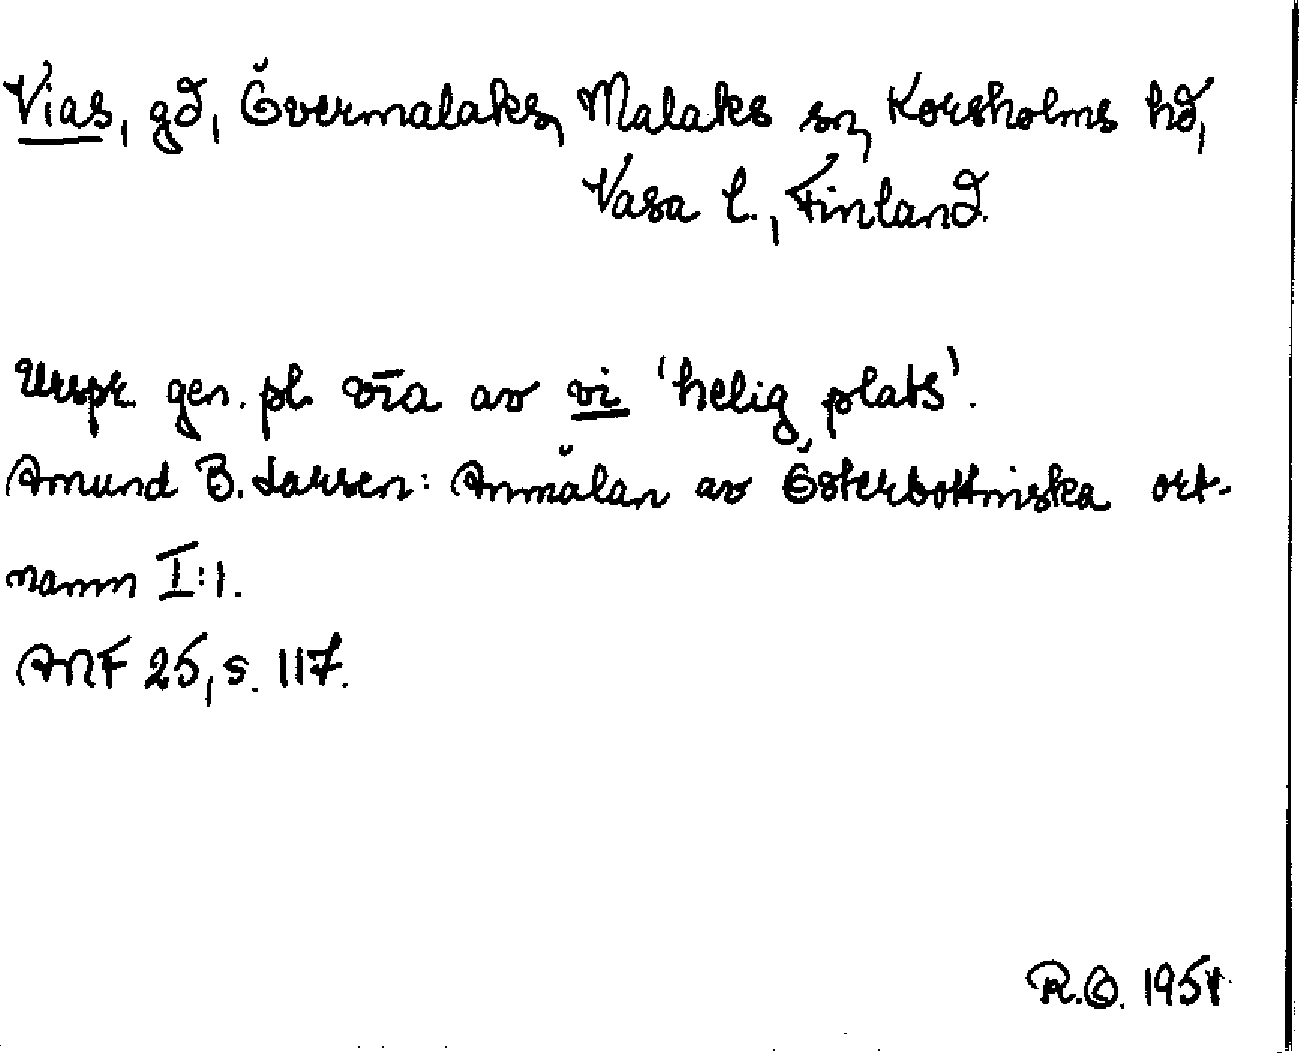 Vias, gd, Övermalaks, Malaks sn, Korsholms hd,
Vasa l., Finland.
Urspr. gen. pl. vīa av vi 'helig plats'.
Amund B. Larsen: Anmälan av Österbottniska ort-
namn I:1.
ANF 25, s. 117.
R.O. 1954